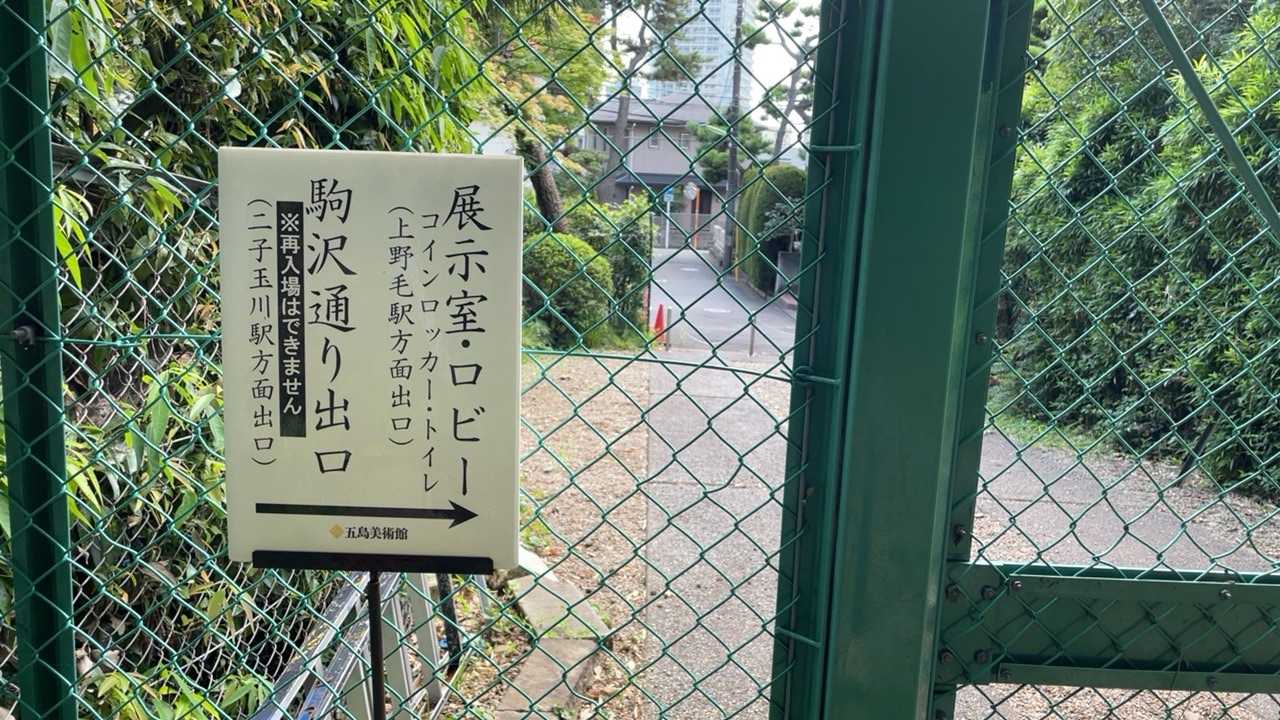 展示室・ロビー
コインロッカー・トイレ
（上野毛駅方面出口）
駒沢通り出口
※再入場はできません
（二子玉川駅方面出口）
五島美術館